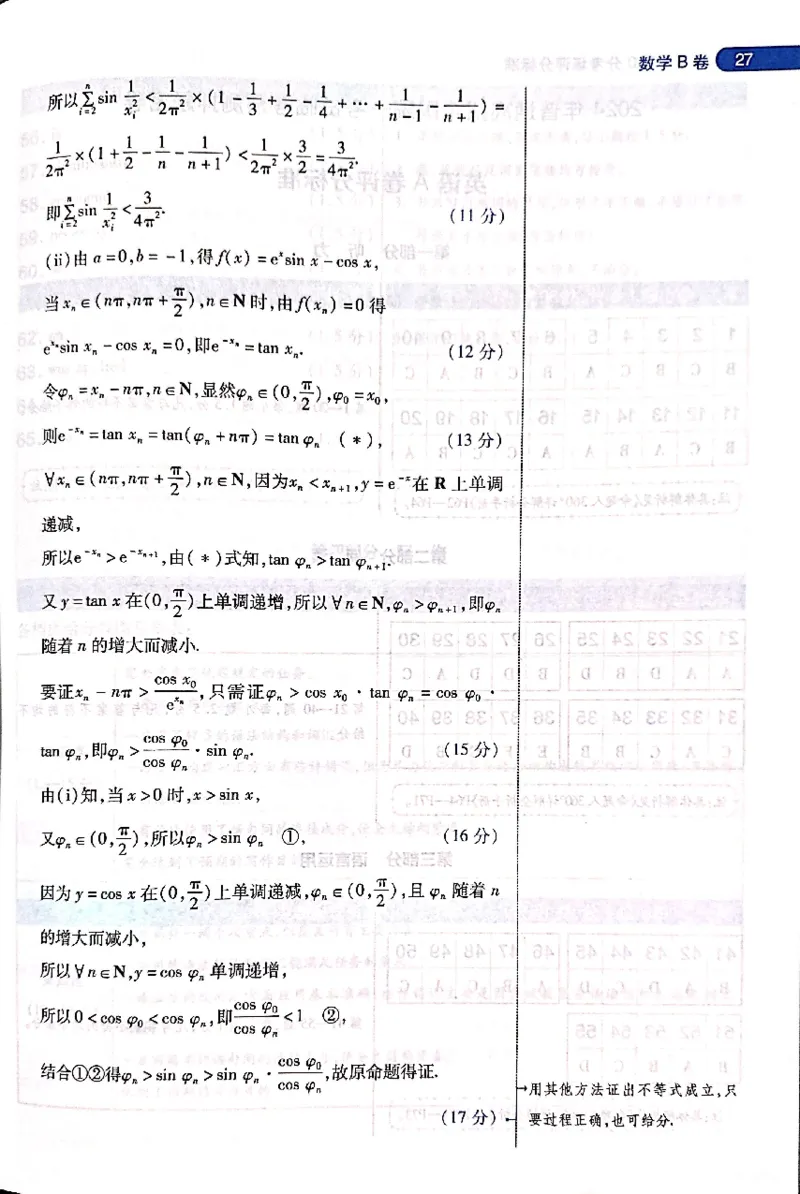 数学B卷 27
所以∑_{i=2}^{n} sin 1/x_i² < 1/2π² ×(1 - 1/3 + 1/2 - 1/4 + … + 1/(n-1) - 1/(n+1)) =
1/2π² ×(1 + 1/2 - 1/n - 1/(n+1)) < 1/2π² × 3/2 = 3/4π².
即∑_{i=2}^{n} sin 1/x_i² < 3/4π². (11 分)
(ii)由 a=0,b= -1,得f(x) = eˣsin x - cos x,
当xₙ∈(nπ,nπ+π/2),n∈N时,由f(xₙ)=0得
e^{xₙ}sin xₙ - cos xₙ =0,即e^{-xₙ} = tan xₙ. (12 分)
令φₙ = xₙ - nπ,n∈N,显然φₙ∈(0,π/2),φ₀ = x₀,
则e^{-xₙ} = tan xₙ = tan(φₙ + nπ) = tan φₙ (*), (13 分)
∀xₙ∈(nπ,nπ+π/2),n∈N,因为xₙ < xₙ₊₁,y = e^{-x}在 R 上单调
递减,
所以e^{-xₙ} > e^{-xₙ₊₁},由(*)式知,tan φₙ > tan φₙ₊₁.
又y = tan x 在(0,π/2)上单调递增,所以∀n∈N,φₙ > φₙ₊₁,即φₙ
随着 n 的增大而减小.
要证xₙ - nπ > cos x₀/e^{xₙ},只需证φₙ > cos x₀ · tan φₙ = cos φ₀ ·
tan φₙ,即φₙ > cos φ₀/cos φₙ · sin φₙ. (15 分)
由(i)知,当x>0时,x>sin x,
又φₙ∈(0,π/2),所以φₙ > sin φₙ ①, (16 分)
因为y = cos x 在(0,π/2)上单调递减,φₙ∈(0,π/2),且 φₙ 随着 n
的增大而减小,
所以∀n∈N,y = cos φₙ 单调递增,
所以0 < cos φ₀ < cos φₙ,即cos φ₀/cos φₙ < 1 ②,
结合①②得φₙ > sin φₙ > sin φₙ · cos φ₀/cos φₙ,故原命题得证.
(17 分)
用其他方法证出不等式成立,只
要过程正确,也可给分.